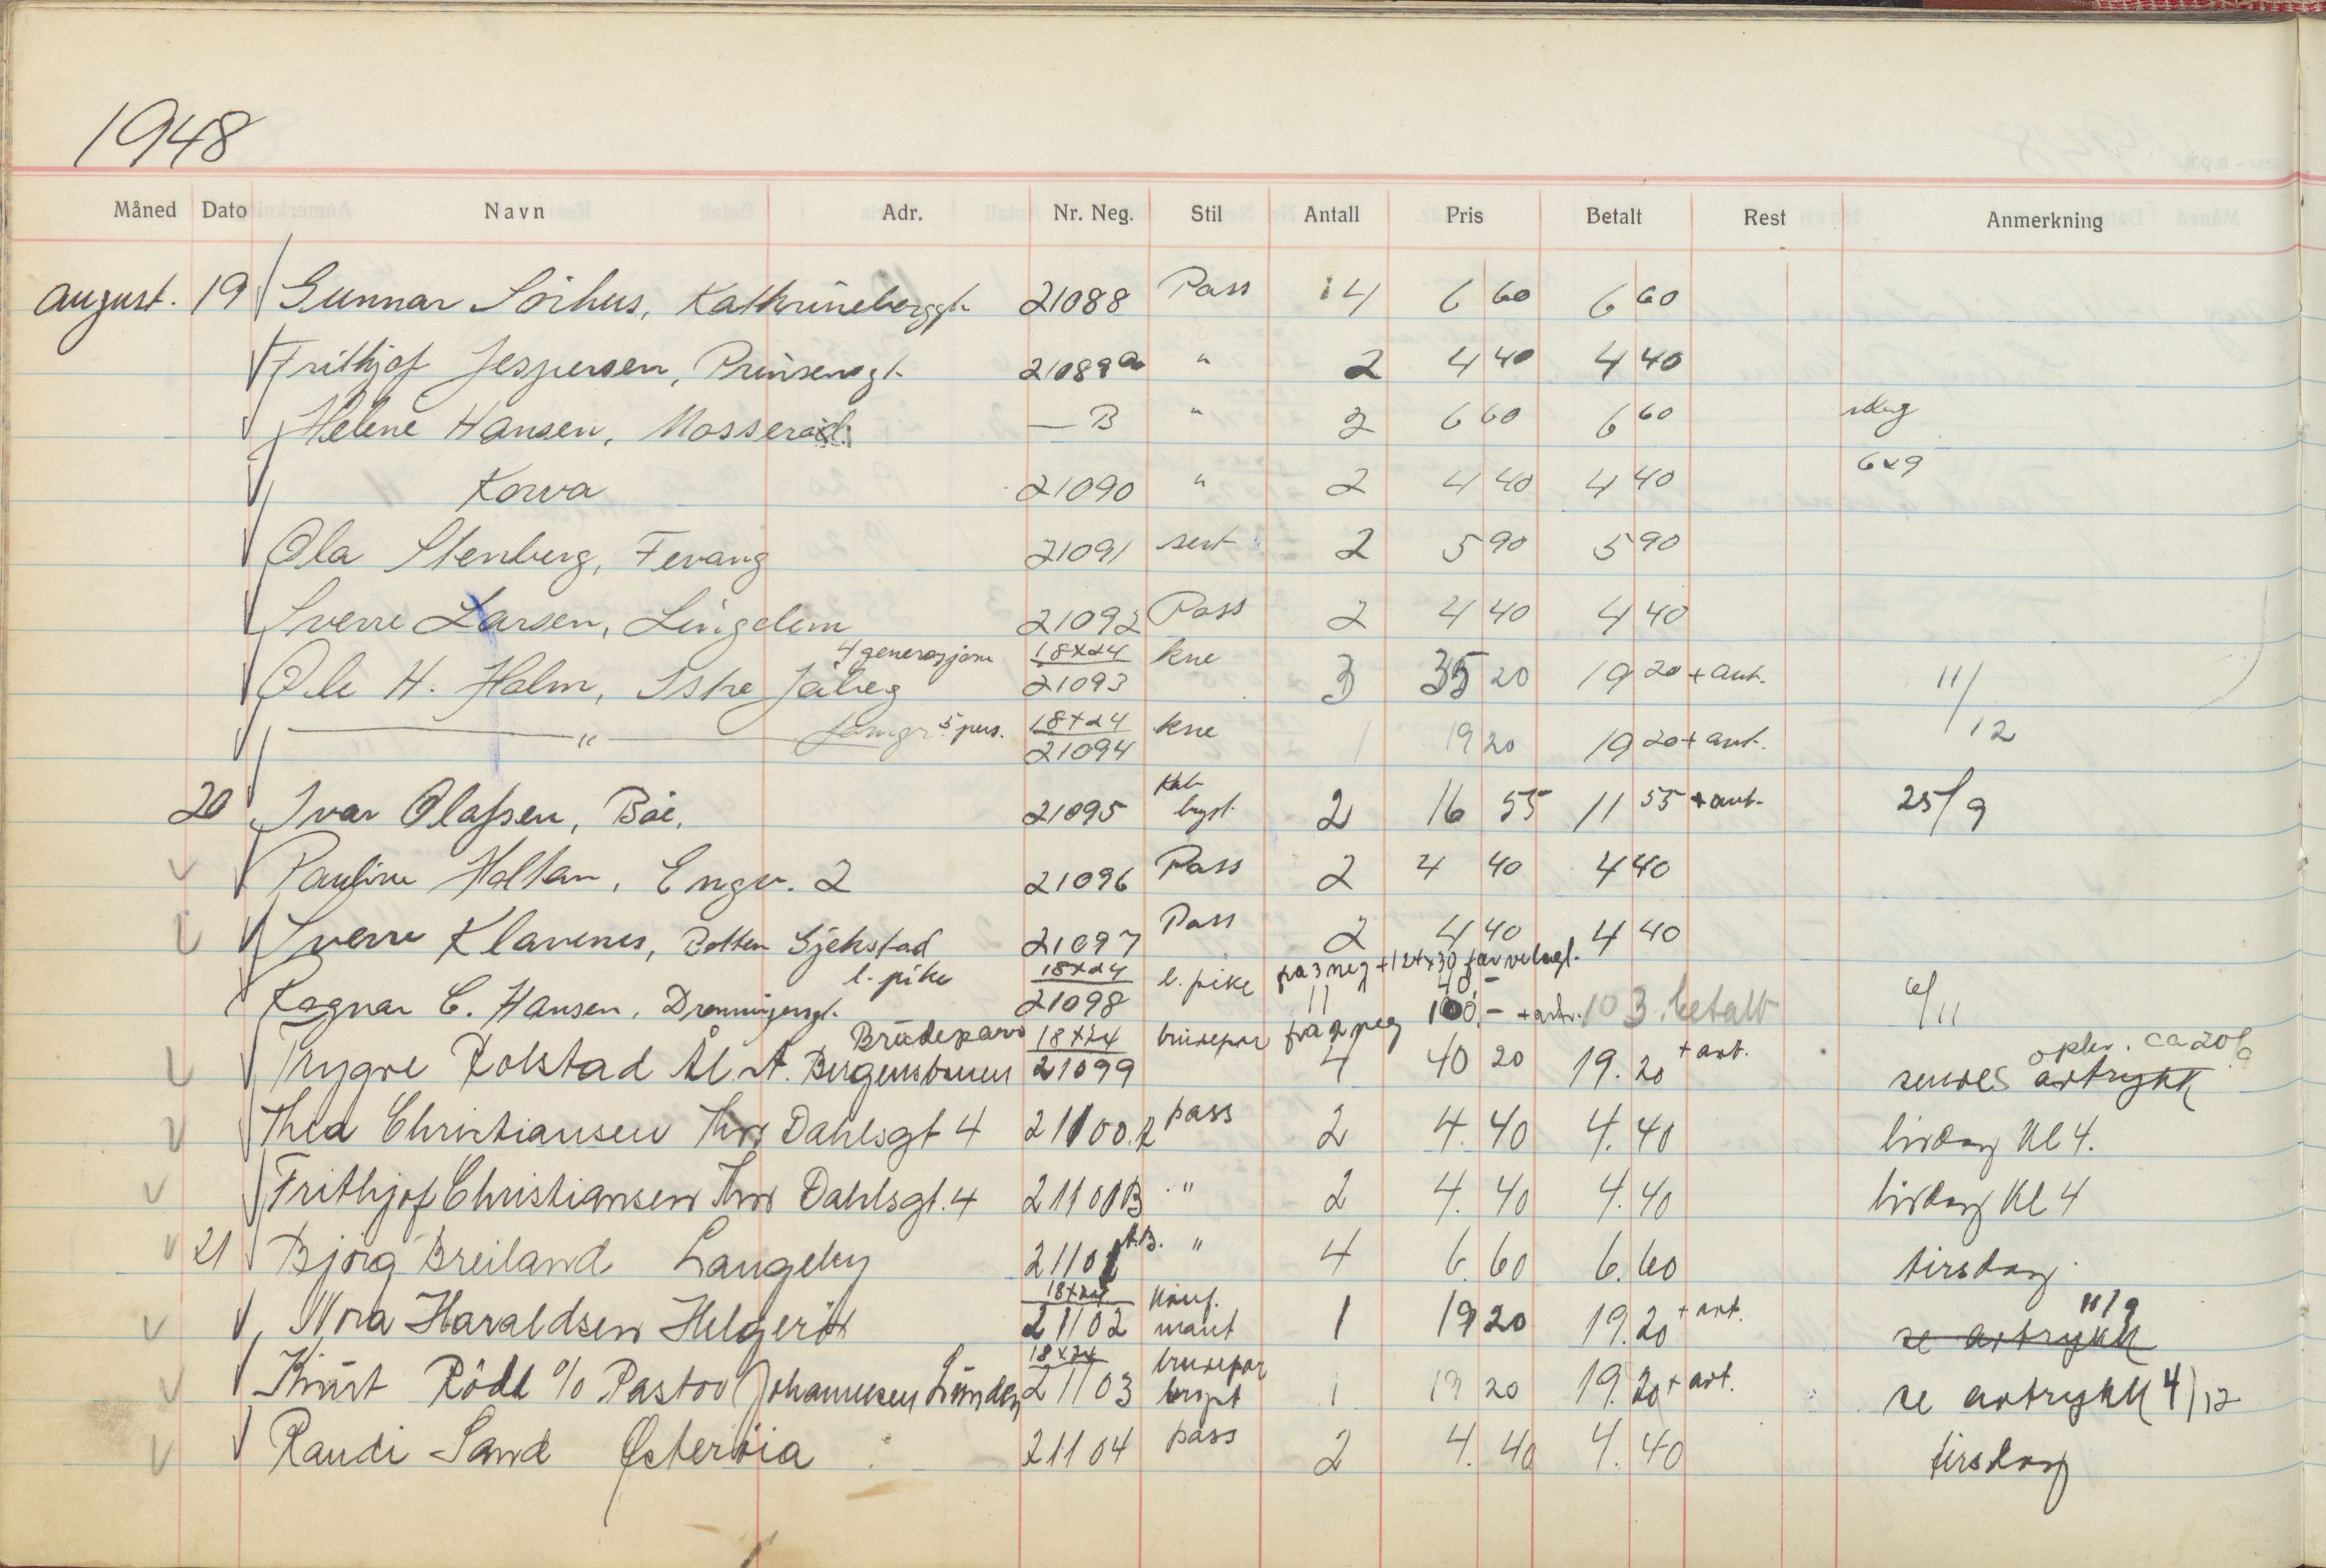 1948
Måned Dato Navn Adr. Nr. Neg. Stil Antall Pris Betalt Rest Anmerkning
August. 19 Gunnar Sørhus, Kathrineborggt. 21088 Pass 4 6 60 6 60
Frithjof Jespersen, Prinsensgt. 21089a " 2 4 40 4 40
Helene Hansen, Mosserød. — B " 2 6 60 6 60
Korva 21090 " 2 4 40 4 40 6x9
Ola Stenberg, Fevang 21091 sert 2 5 90 5 90
Sverre Larsen, Lingelem 21092 Pass 2 4 40 4 40
4 generasjon 18x24 kne
Ole H. Holm, Istre Jåberg 21093 3 35 20 19 20 + ant. 11/12
— " — famgr. 5 pers. 18x24 21094 kne 1 19 20 19 20 + ant.
20 Ivar Olafsen, Bøe. 21095 Kab. byst. 2 16 55 11 55 + ant. 25/9
Pauline Holtan, Engv. 2 21096 Pass 2 4 40 4 40
Sverre Klavenes, Botten Sjekstad 21097 Pass 2 4 40 4 40
l. pike 18x24 l. pike fra 3 neg + 1 24x30 farvelagt. 40,-
Ragnar C. Hansen, Dronningensgt. 21098 11 100,- + ant. 103. betalt 6/11
Brudepar 18x24 brudepar fra 2 neg opkv. ca 20/9
Trygve Rolstad Ål st. Bergensbanen 21099 4 40 20 19. 20 + avt. sendes avtrykk
Thea Christiansen Thor Dahlsgt 4 21100.A pass 2 4. 40 4. 40 lørdag kl 4.
Frithjof Christiansen Thor Dahlsgt. 4 21100B " 2 4. 40 4. 40 lørdag kl 4
21 Bjørg Breiland Langeby 21101 A.B. " 4 6. 60 6. 60 tirsdag
18x24 11/9
Nora Haraldsen Helgerød 21102 Konf. mant 1 19 20 19. 20 + avt. se avtrykk
18x24 brudepar
Knut Rödl c/o Pastor Johannesen Lunden 21103 bryst 1 19 20 19. 20 + avt. se avtrykk 4/12
Randi Sand Østerøia 21104 pass 2 4. 40 4. 40 tirsdag